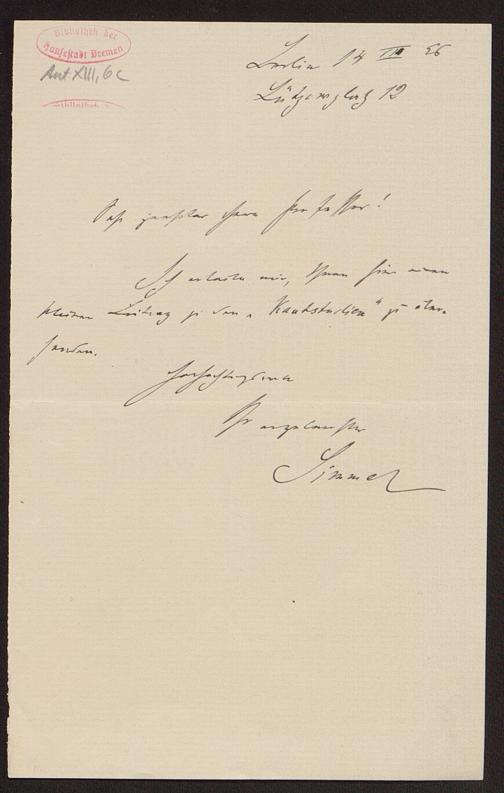 Bibliothek der
Hansestadt Bremen
Aut XIII, 6c
Bibliothek
Berlin 14 III 96
Lützowplatz 12
Sehr geehrter Herr Professor!
Ich erlaube mir, Ihnen hier einen
kleinen Beitrag zu den „Kantstudien" zu über-
senden.
Hochachtungsvoll
Ihr ergebenster
Simmel